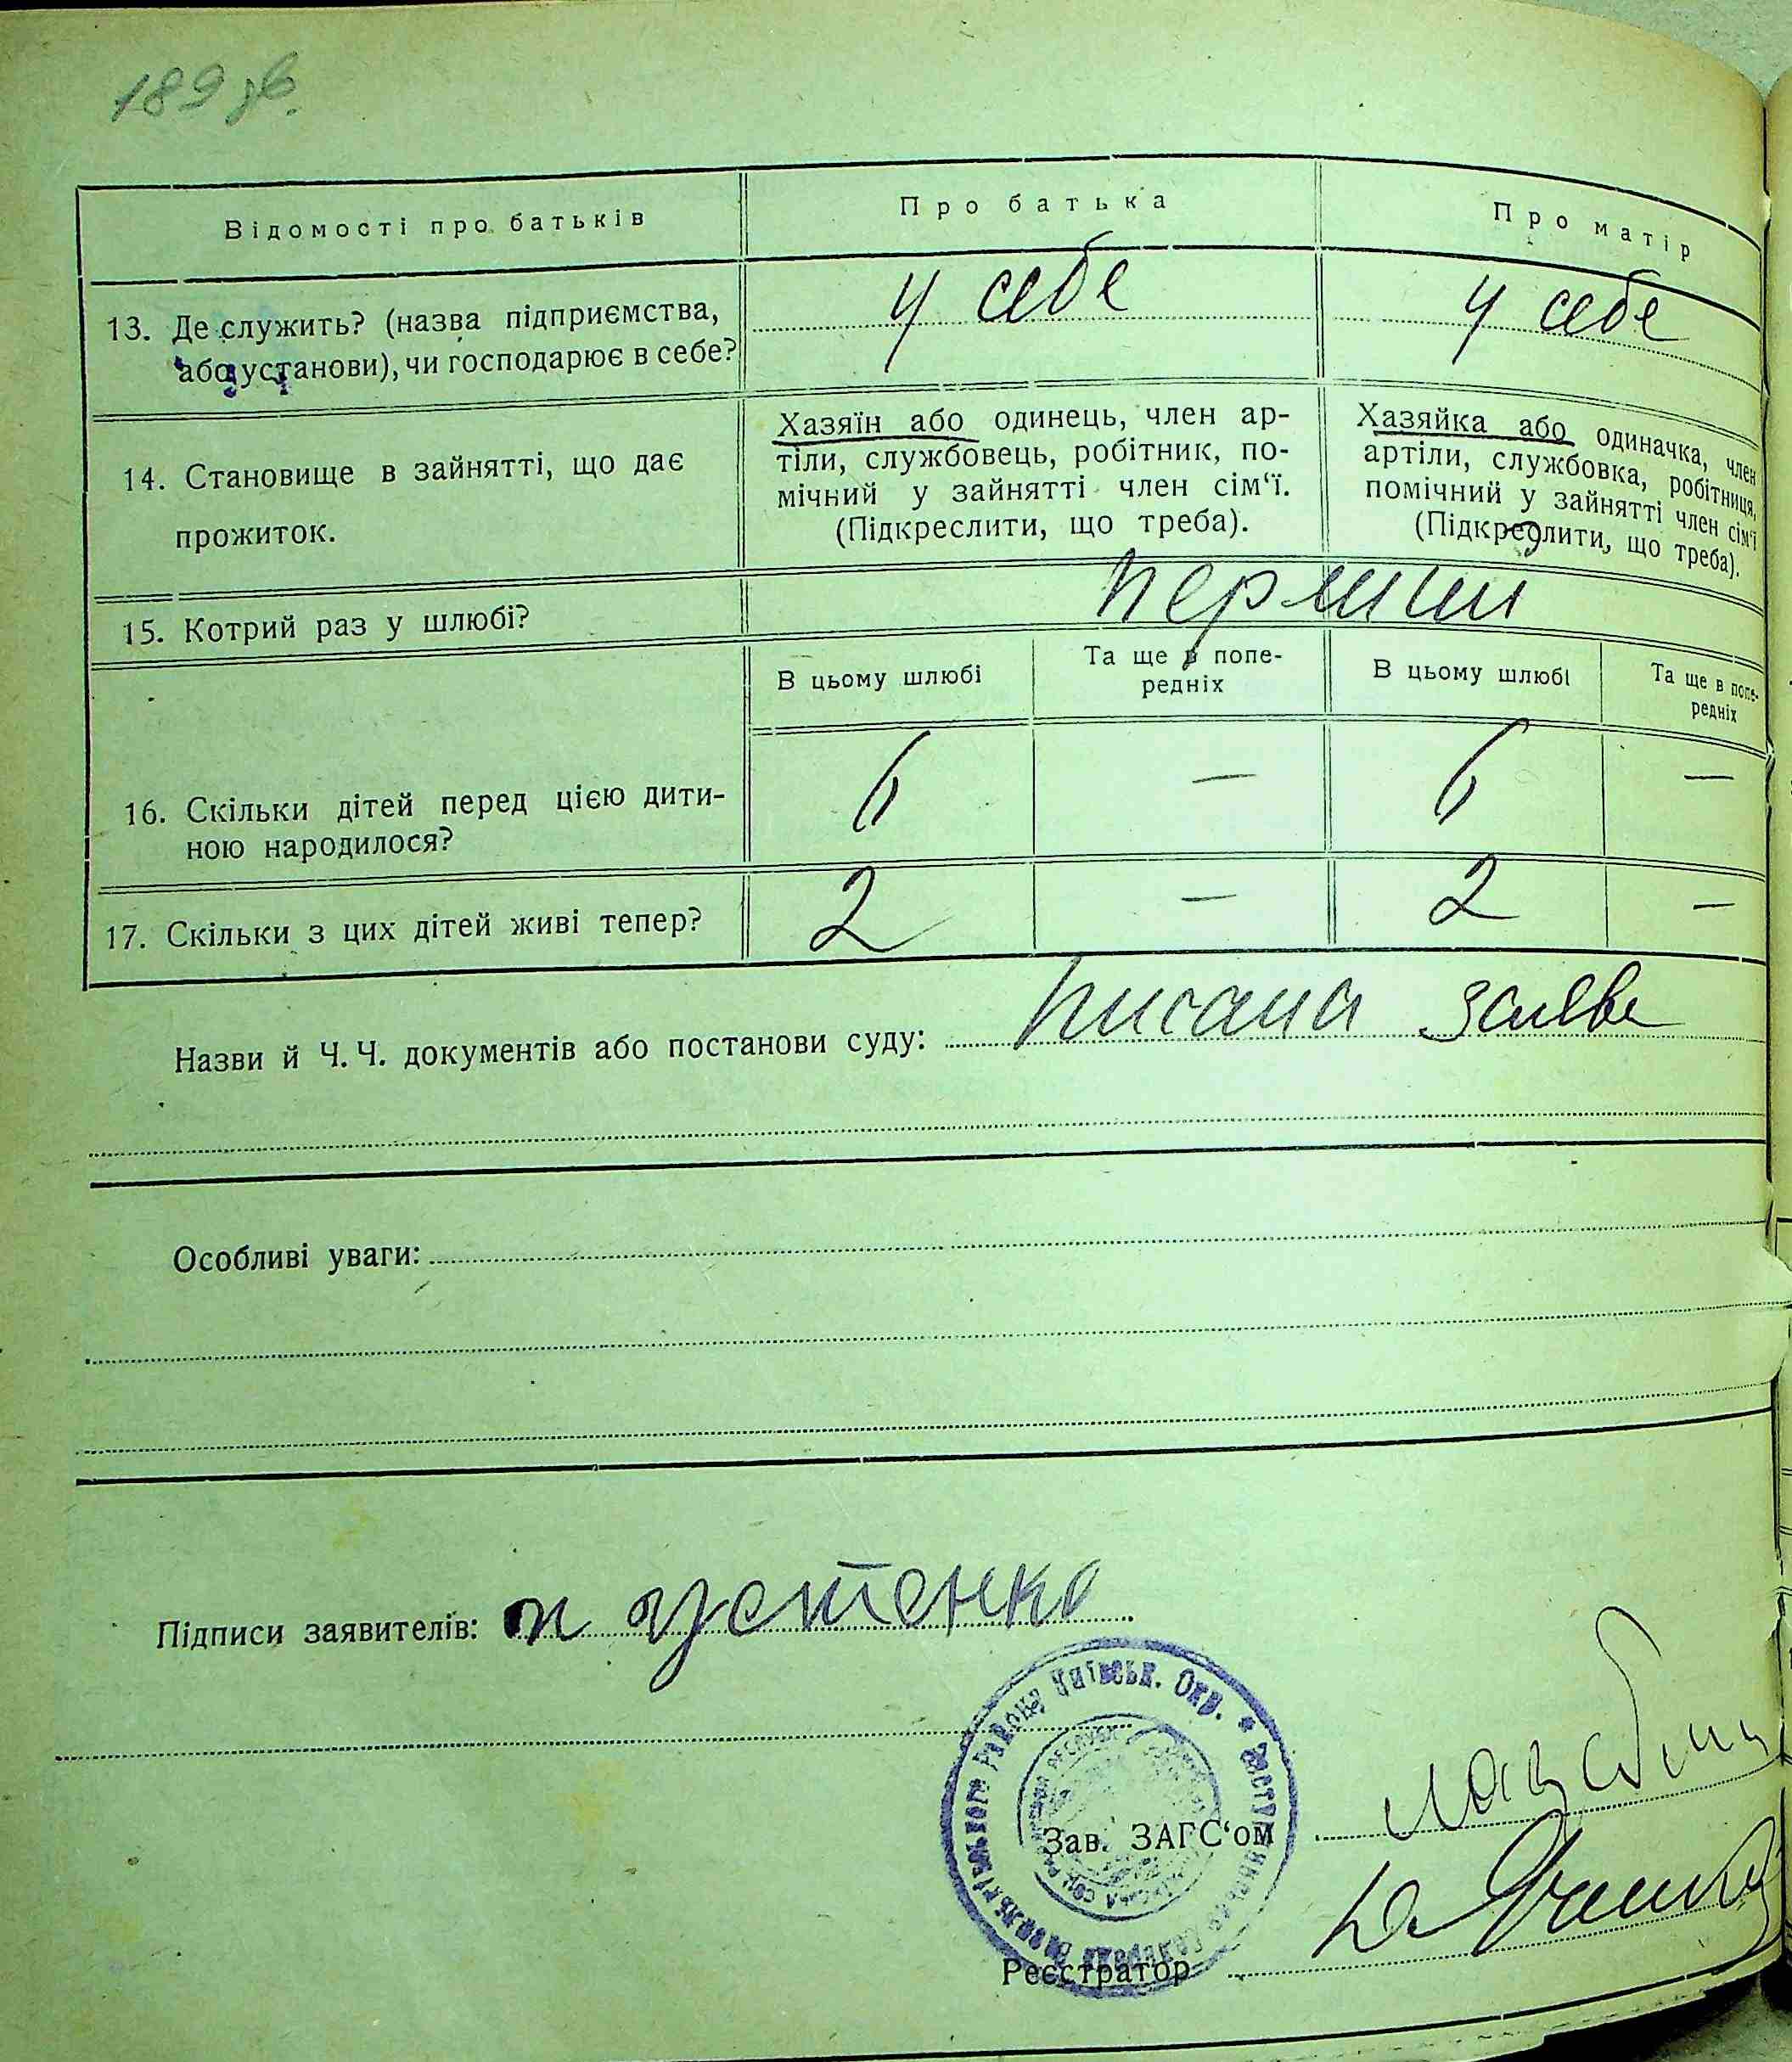 189 зв.
Відомості про батьків
Про батька
Про матір
13. Де служить? (назва підприємства,
або установи), чи господарює в себе?
у себе
у себе
14. Становище в зайнятті, що дає
прожиток.
Хазяїн або одинець, член ар-
тіли, службовець, робітник, по-
мічний у зайнятті член сім‘ї.
(Підкреслити, що треба).
Хазяйка або одиначка, член
артіли, службовка, робітниця,
помічний у зайнятті член сім‘ї
(Підкреслити, що треба).
15. Котрий раз у шлюбі?
перший
В цьому шлюбі
Та ще в попе-
редніх
В цьому шлюбі
Та ще в попе-
редніх
16. Скільки дітей перед цією дити-
ною народилося?
6 — 6 —
17. Скільки з цих дітей живі тепер?
2 — 2 —
Назви й Ч. Ч. документів або постанови суду:
Особливі уваги:
Підписи заявителів:
устенко
Району Київськ. Окр.
Зав. ЗАГС‘ом
Реєстратор